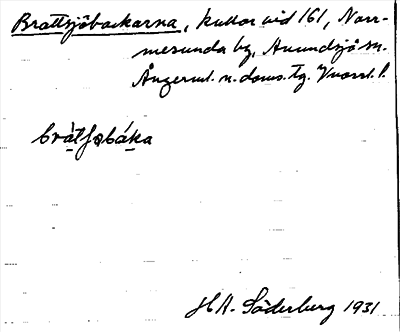 Brattsjöbackarna, kullar vid 161, Norr-
mesunda by, Anundsjö sn.
Ångerml. n. doms. tg. Vnorrl. l.
bràtʃəbáka
H A. Söderberg 1931